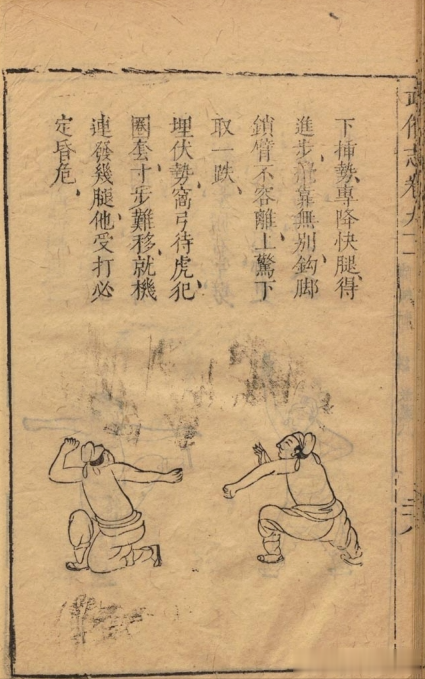 武備志卷九十一
下挿勢、專降快腿、得
進步、攪靠無別、鈎脚
鎖臂不容離、上驚下
取一跌、
埋伏勢、窩弓待虎、犯
圈套寸步難移、就機
連發幾腿、他受打必
定昏危、